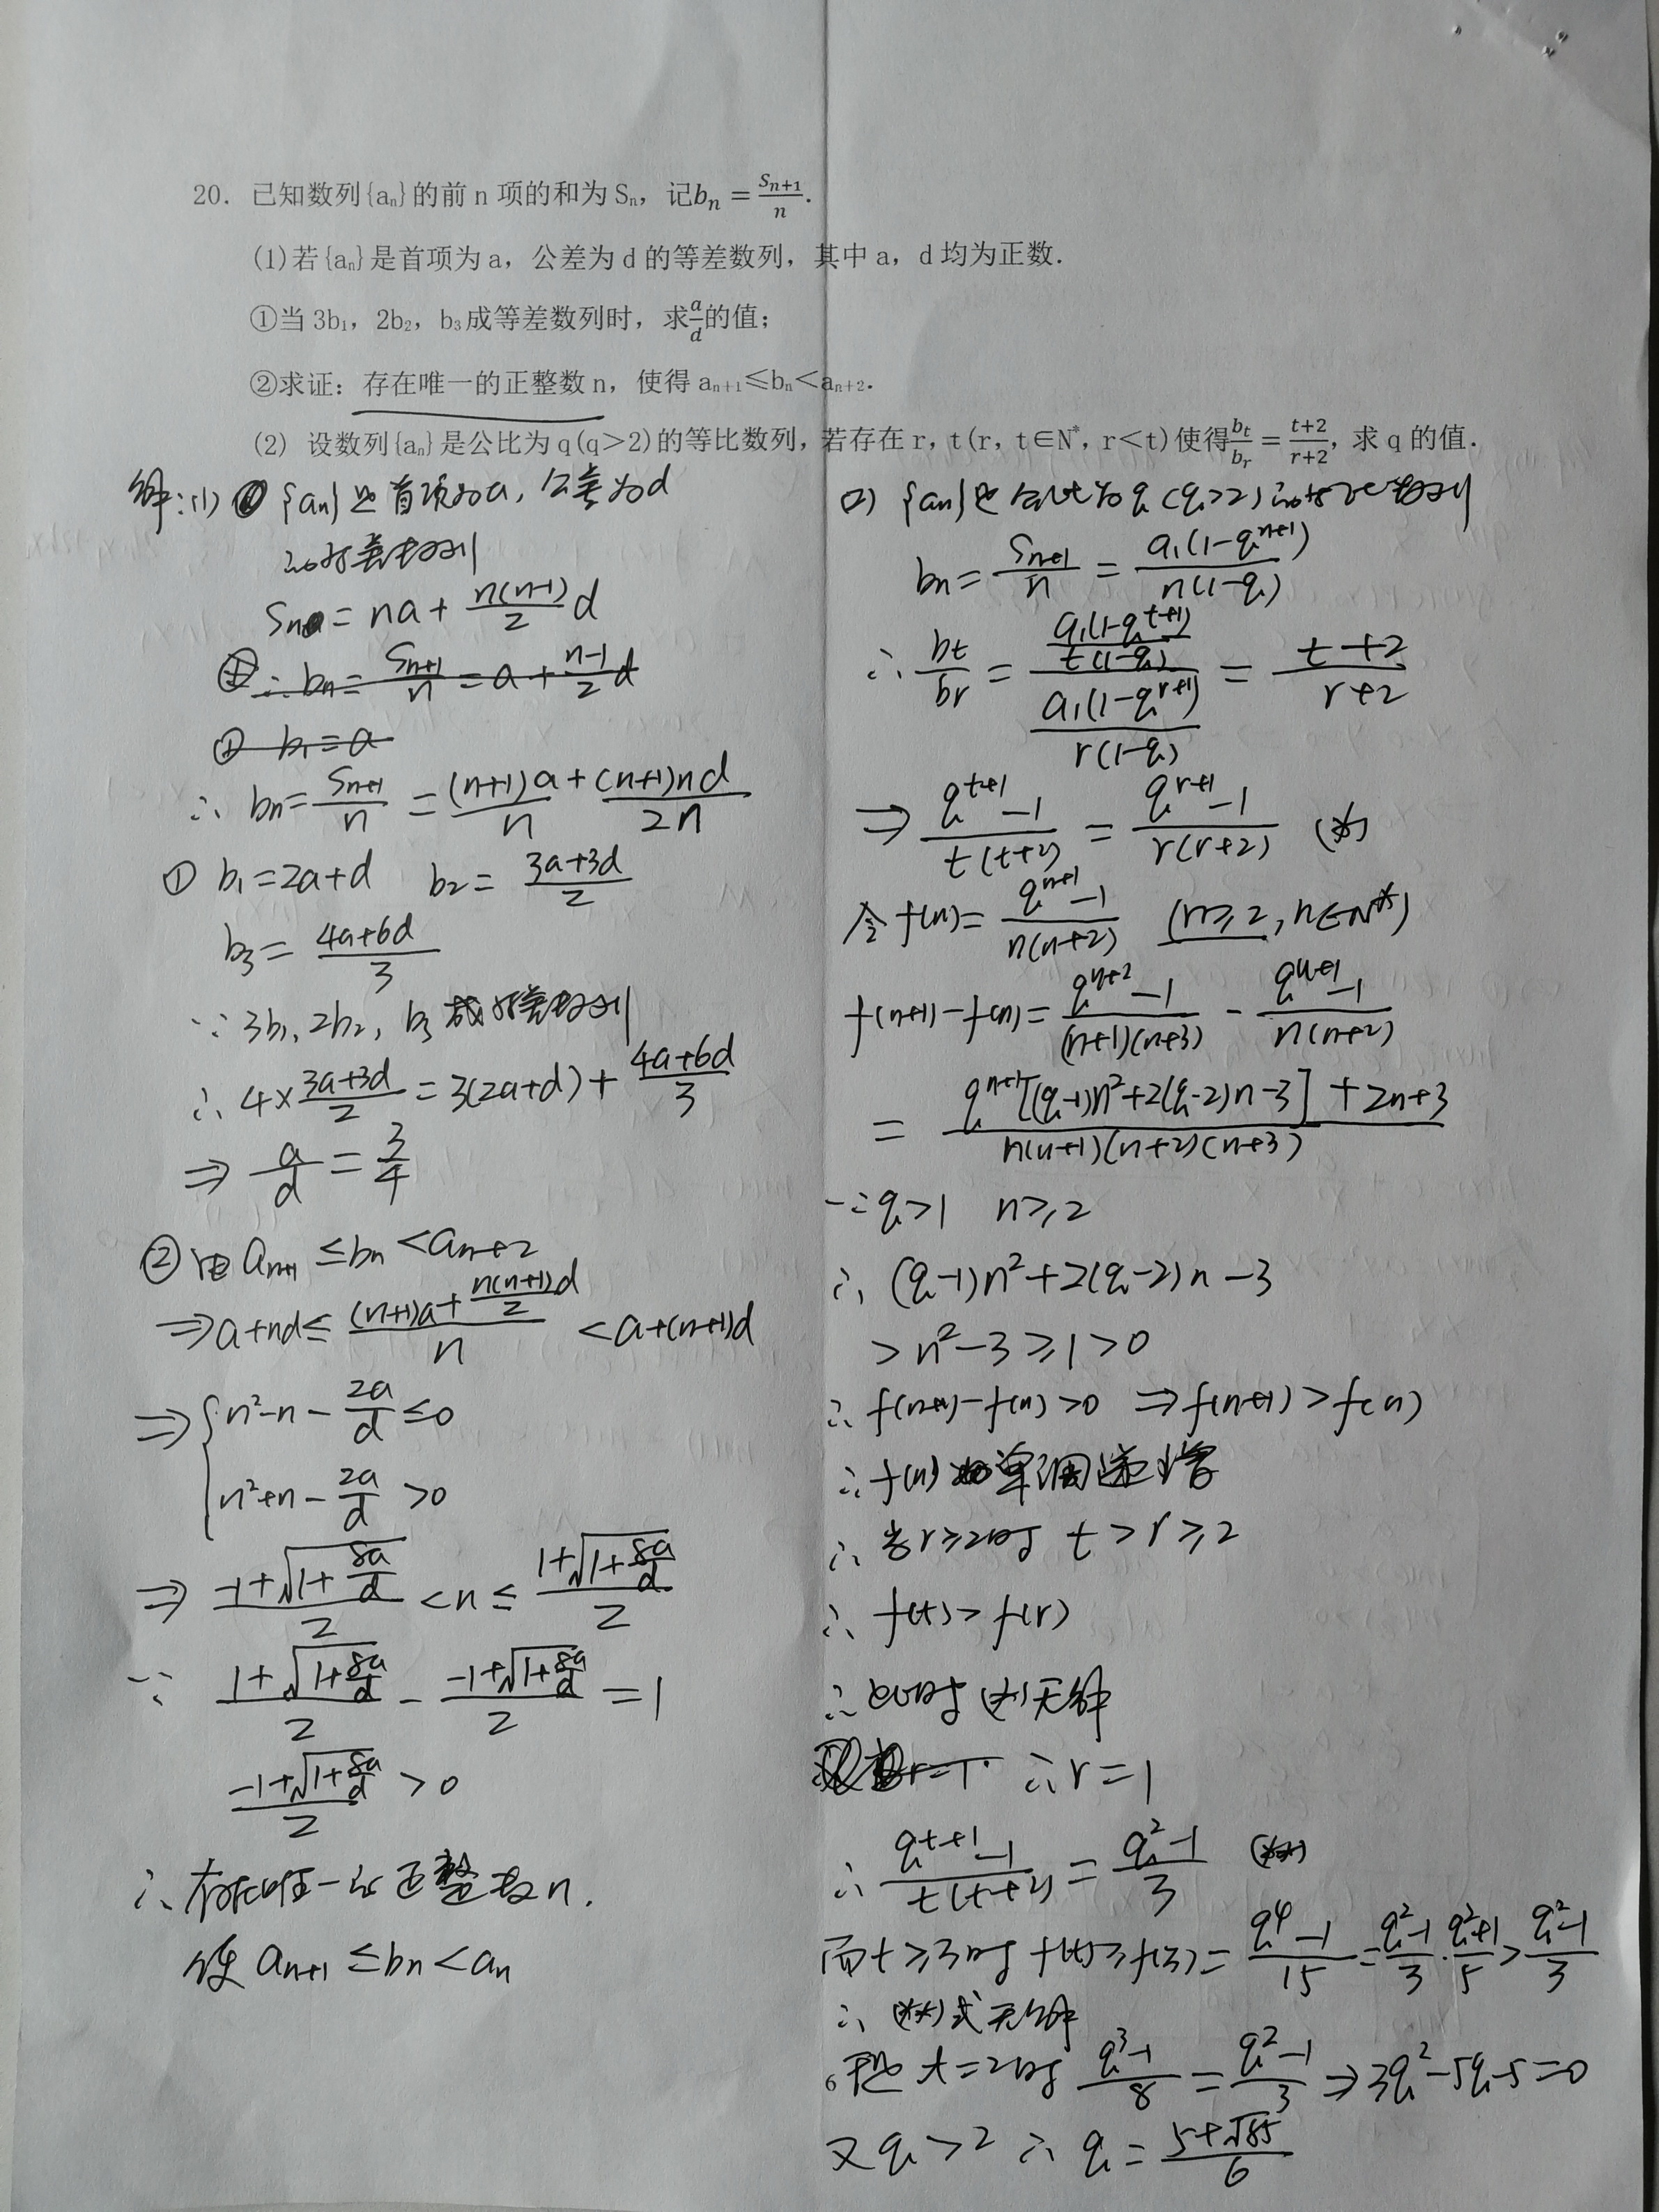 20. 已知数列{aₙ}的前 n 项的和为 Sₙ，记bₙ = Sₙ₊₁/n.
(1)若{aₙ}是首项为 a，公差为 d 的等差数列，其中 a，d 均为正数.
①当 3b₁，2b₂，b₃成等差数列时，求a/d的值；
②求证：存在唯一的正整数 n，使得 aₙ₊₁≤bₙ<aₙ₊₂.
(2) 设数列{aₙ}是公比为 q(q>2)的等比数列，若存在 r，t(r，t∈N*，r<t)使得bₜ/bᵣ = (t+2)/(r+2)，求 q 的值.
解:(1) {aₙ}是首项为a，公差为d
的等差数列
Sₙ = na + n(n-1)/2 d
① ∴ bₙ = Sₙ₊₁/n = a + (n-1)/2 d
① b₁=a
∴ bₙ = Sₙ₊₁/n = (n+1)a/n + (n+1)nd/2n
① b₁=2a+d b₂= (3a+3d)/2
b₃= (4a+6d)/3
∵ 3b₁, 2b₂, b₃ 成等差数列
∴ 4×(3a+3d)/2 = 3(2a+d)+(4a+6d)/3
⇒ a/d = 3/4
② 证 aₙ₊₁ ≤bₙ <aₙ₊₂
⇒a+nd≤ ((n+1)a+n(n+1)d/2)/n <a+(n+1)d
⇒{n²-n-2a/d ≤0
n²+n-2a/d >0
⇒ (-1+√(1+8a/d))/2 <n≤ (1+√(1+8a/d))/2
∵ (1+√(1+8a/d))/2 - (-1+√(1+8a/d))/2 =1
(-1+√(1+8a/d))/2 >0
∴ 存在唯一的正整数n.
使 aₙ₊₁ ≤bₙ<aₙ
(2) {aₙ}是公比为q (q>2)的等比数列
bₙ= Sₙ₊₁/n = a₁(1-qⁿ⁺¹)/n(1-q)
∴ bₜ/bᵣ = (a₁(1-q^(t+1))/t(1-q))/(a₁(1-q^(r+1))/r(1-q)) = (t+2)/(r+2)
⇒ (q^(t+1)-1)/t(t+2) = (q^(r+1)-1)/r(r+2) (*)
令 f(n)= (qⁿ⁺¹-1)/n(n+2) (n≥2, n∈N*)
f(n+1)-f(n)= (qⁿ⁺²-1)/(n+1)(n+3) - (qⁿ⁺¹-1)/n(n+2)
= (qⁿ⁺¹[(q-1)n²+2(q-2)n-3]+2n+3)/n(n+1)(n+2)(n+3)
∵q>1 n≥2
∴ (q-1)n²+2(q-2)n-3
>n²-3≥1>0
∴ f(n+1)-f(n)>0 ⇒f(n+1)>f(n)
∴ f(n) 单调递增
∴ 当r≥2时 t>r≥2
∴ f(t)>f(r)
∴ 此时(*)无解
r=1 ∴r=1
∴ (q^(t+1)-1)/t(t+2) = (q²-1)/3 (**)
而t≥3时 f(t)≥f(3)= (q⁴-1)/15 = (q²-1)/3·(q²+1)/5 > (q²-1)/3
∴ (**)式无解
t=2时 (q³-1)/8 = (q²-1)/3 ⇒3q²-5q-5=0
又q>2 ∴ q= (5+√85)/6